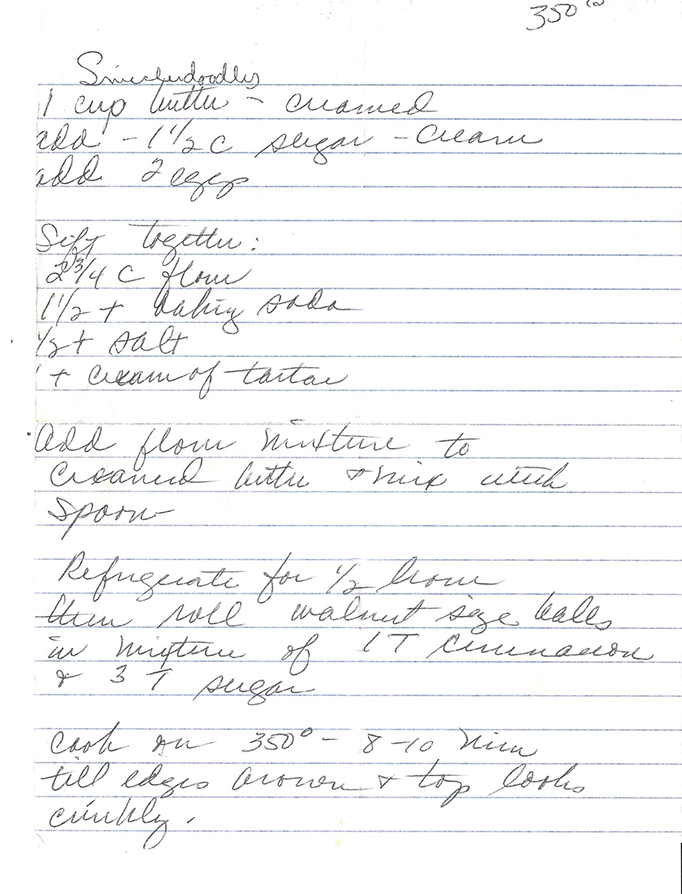 350°
Snickerdoodles
1 cup butter - creamed
add - 1 1/2 c sugar - cream
add 2 eggs
Sift together:
2 3/4 c flour
1 1/2 t baking soda
1/2 t salt
1 t cream of tartar
Add flour mixture to
creamed butter & mix with
spoon
Refrigerate for 1/2 hour
then roll walnut size balls
in mixture of 1 T cinnamon
& 3 T sugar
Cook on 350° - 8-10 min
till edges brown & top looks
crinkly.